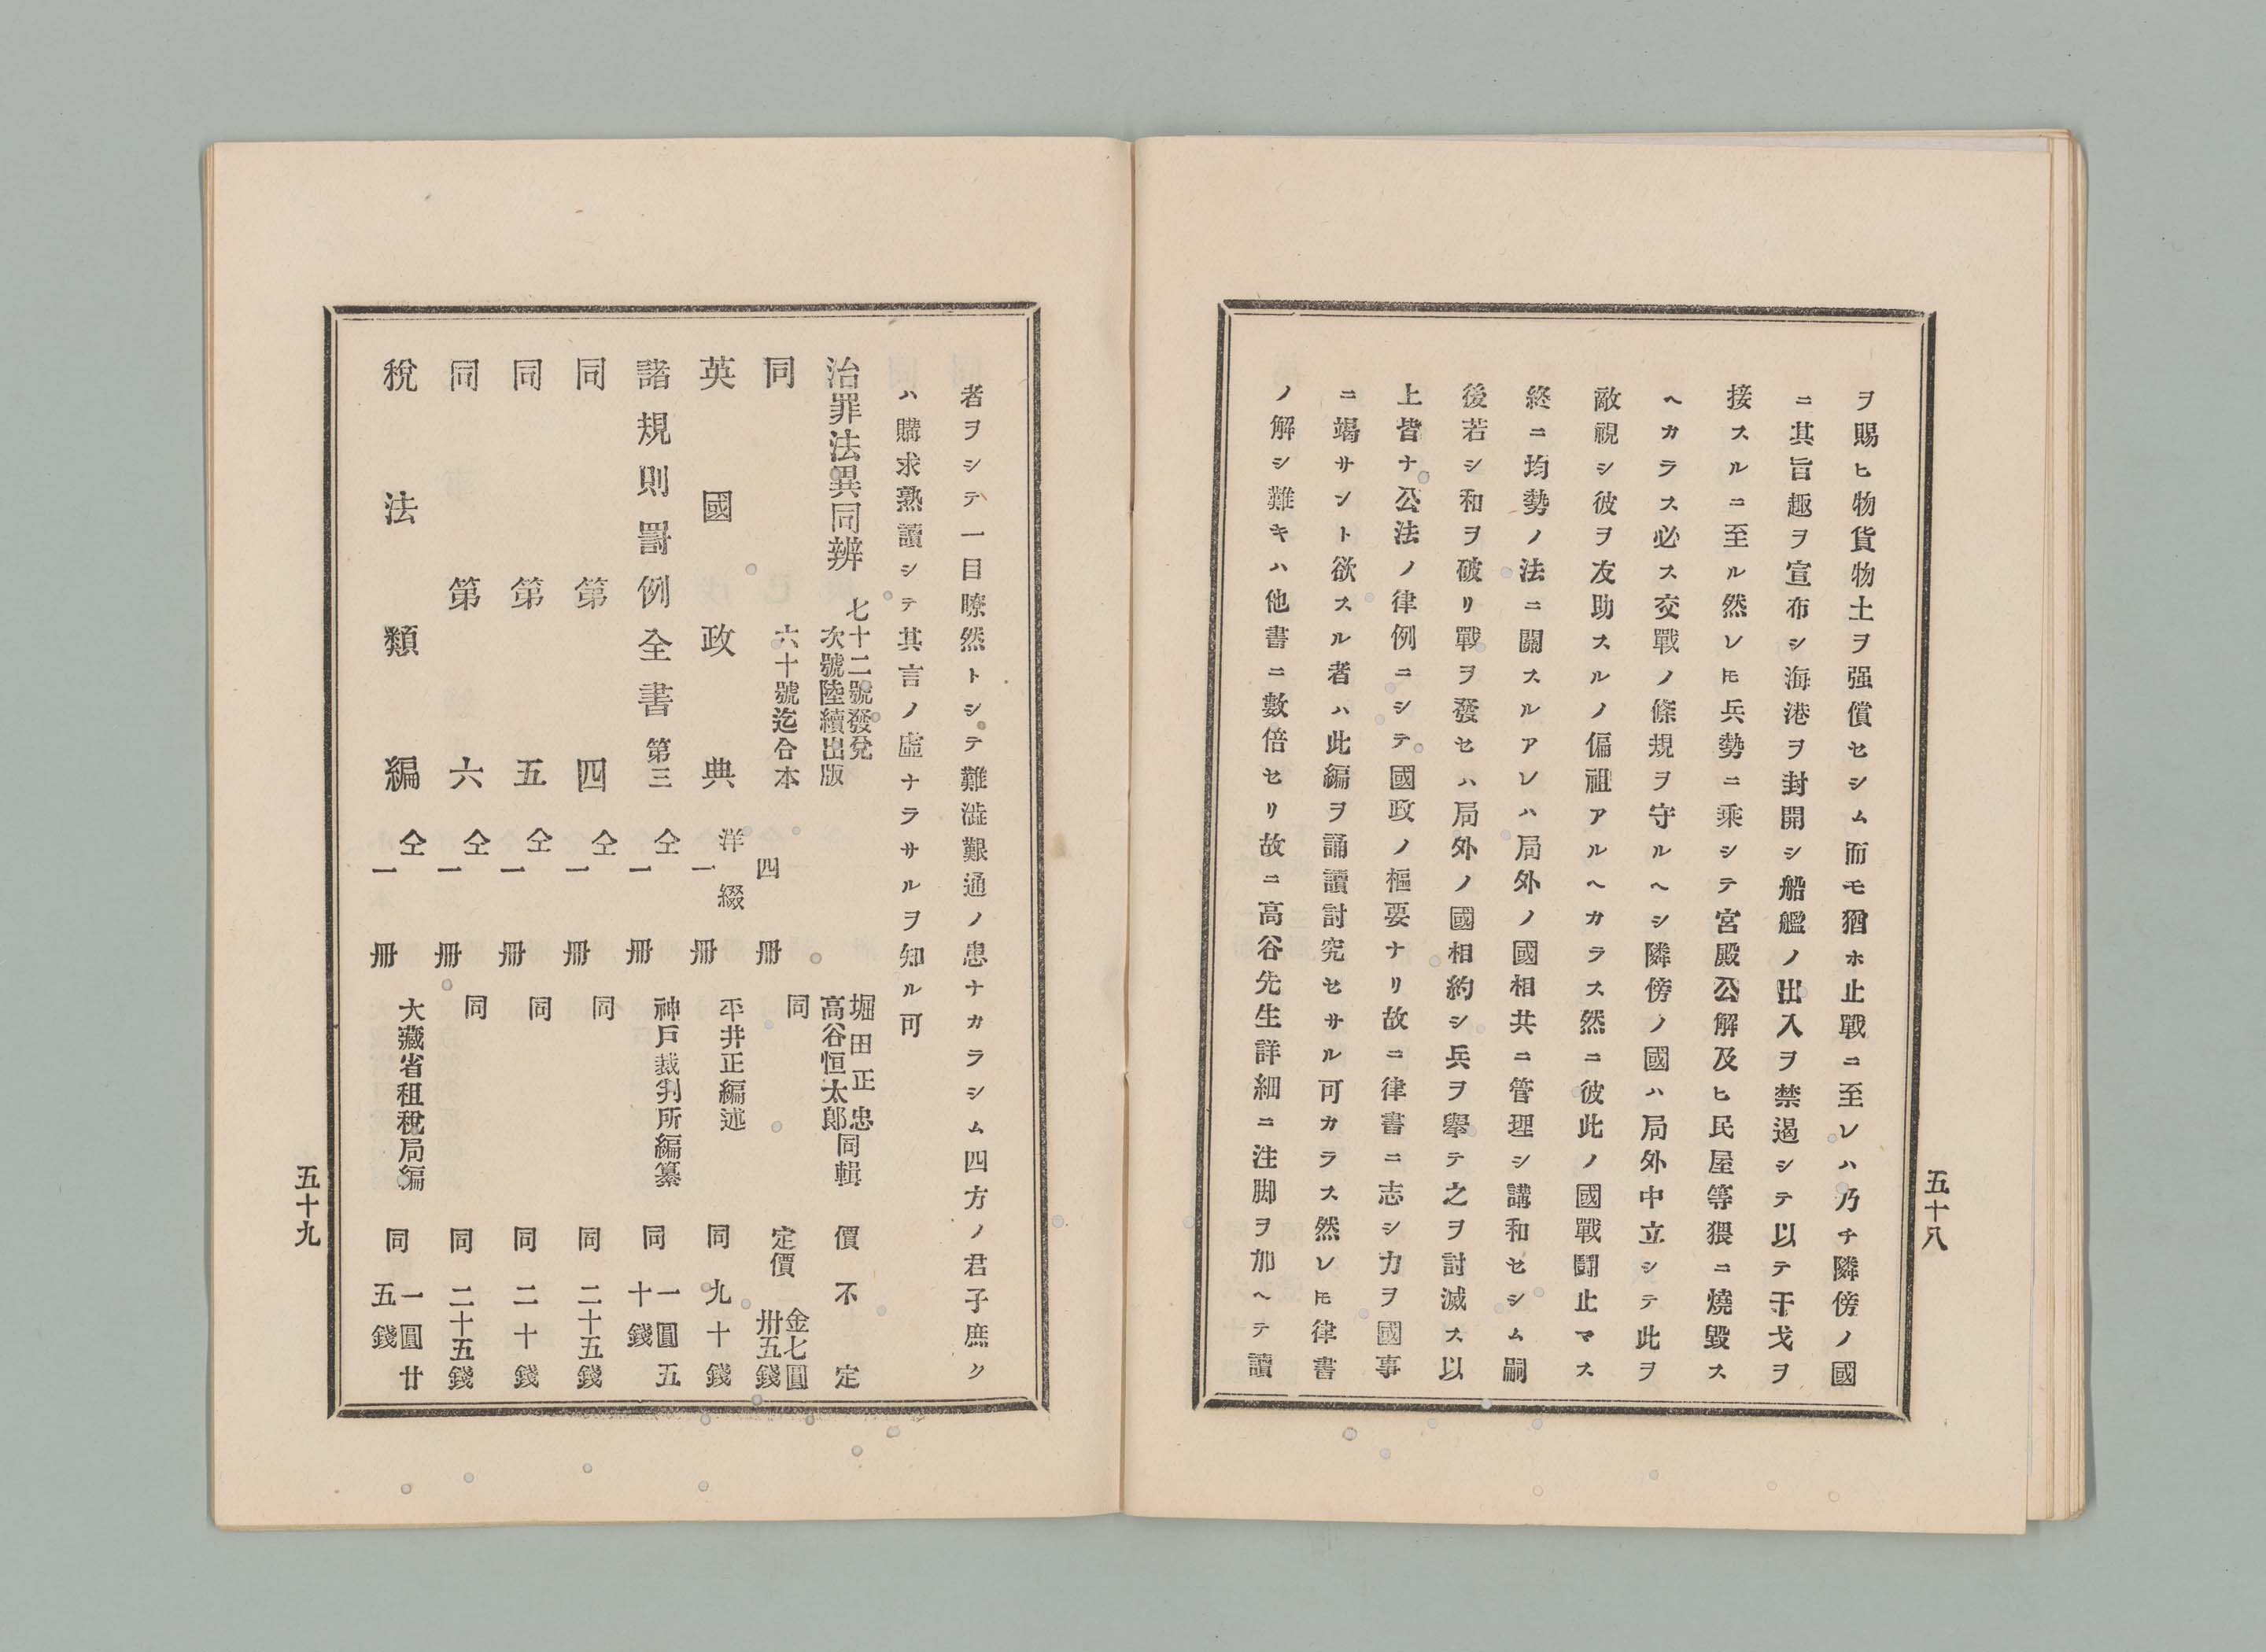 五十八
ヲ賜ヒ物貨物土ヲ强償セシム而モ猶ホ止戰ニ至レハ乃チ隣傍ノ國
ニ其旨趣ヲ宣布シ海港ヲ封開シ船艦ノ出入ヲ禁遏シテ以テ干戈ヲ
接スルニ至ル然レ𪜈兵勢ニ乘シテ宮殿公解及ヒ民屋等猥ニ燒毀ス
ヘカラス必ス交戰ノ條規ヲ守ルヘシ隣傍ノ國ハ局外中立シテ此ヲ
敵視シ彼ヲ友助スルノ偏祖アルヘカラス然ニ彼此ノ國戰鬪止マス
終ニ均勢ノ法ニ關スルアレハ局外ノ國相共ニ管理シ講和セシム嗣
後若シ和ヲ破リ戰ヲ發セハ局外ノ國相約シ兵ヲ擧テ之ヲ討滅ス以
上皆ナ公法ノ律例ニシテ國政ノ樞要ナリ故ニ律書ニ志シ力ヲ國事
ニ竭サント欲スル者ハ此編ヲ誦讀討究セサル可カラス然レ𪜈律書
ノ解シ難キハ他書ニ數倍セリ故ニ高谷先生詳細ニ注脚ヲ加ヘテ讀
者ヲシテ一目瞭然トシテ難澁艱通ノ患ナカラシム四方ノ君子庶ク
ハ購求熟讀シテ其言ノ虛ナラサルヲ知ル可
治罪法異同辨 七十二號發兌次號陸續出版 堀田正忠高谷恒太郞同輯 價不定
同 六十號迄合本 四冊 同 定價金七圓卅五錢
英國政典 洋綴一冊 平井正編述 同九十錢
諸規則罰例全書第三 仝一冊 神戶裁判所編纂 同一圓五十錢
同第四 仝一冊 同 同二十五錢
同第五 仝一冊 同 同二十錢
同第六 仝一冊 同 同二十五錢
稅法類編 仝一冊 大藏省租稅局編 同一圓廿五錢
五十九